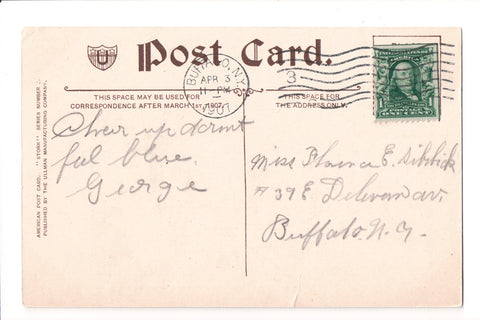 Post Card.
BUFFALO, N.Y.
APR 3
11 PM
1907
3
THIS SPACE MAY BE USED FOR
CORRESPONDENCE AFTER MARCH 1st, 1907.
THIS SPACE IS
FOR THE ADDRESS ONLY.
Chear up dont
ful blue.
George
Miss Florence E.
# 39 E Delevan av.
Buffalo. N.Y.
AMERICAN POST CARD. "STORK" SERIES NUMBER
PUBLISHED BY THE ULLMAN MANUFACTURING COMPANY.
U
POSTAGE
ONE CENT